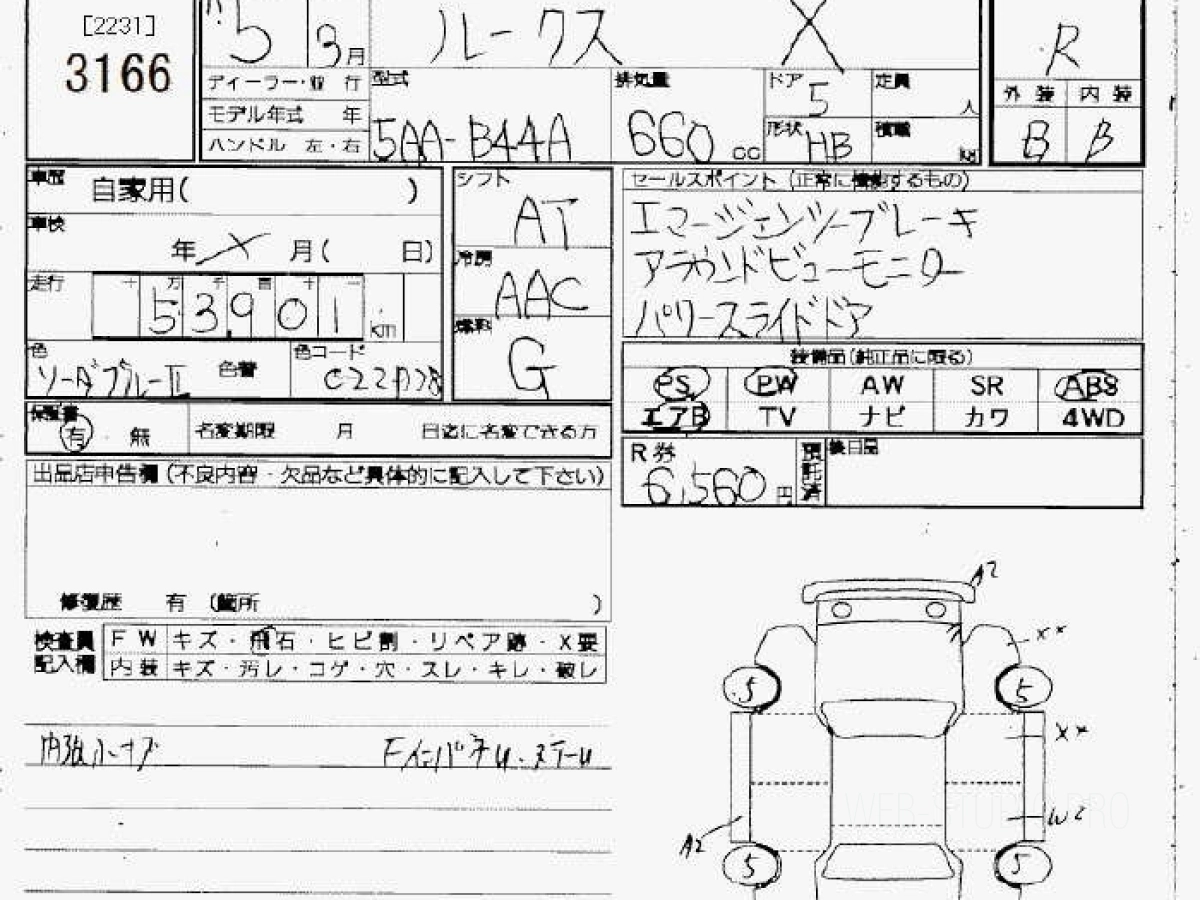 [2231]
3166
5 3月 ルークス X R
ディーラー・並 行 型式 排気量 ドア 5 定員 人
外 装 内 装
モデル年式 年
ハンドル 左・右 5AA-B44A 660 cc 形状 HB 積載 kg
B B
車歴 自家用( )
シフト AT
セールスポイント (正常に機能するもの)
エマージェンシーブレーキ
車検 年 X 月( 日)
冷房 AAC
アラウンドビューモニター
走行 十 万 千 百 十 一
53,901 km
パワースライドドア
燃料 G
色 ソーダブルーⅡ 色替 色コード
装備品(純正品に限る)
PS PW AW SR ABS
エアB TV ナビ カワ 4WD
保証書 有 無 名変期限 月 日迄に名変できる方
R券 6,560円 預託済 後日品
出品店申告欄(不良内容・欠品など具体的に記入して下さい)
修復歴 有 (箇所 )
検査員記入欄
FW キズ・飛石・ヒビ割・リペア跡・X要
内装 キズ・汚レ・コゲ・穴・スレ・キレ・破レ
A2
XX
5 5
XX
W2
A2
5 5